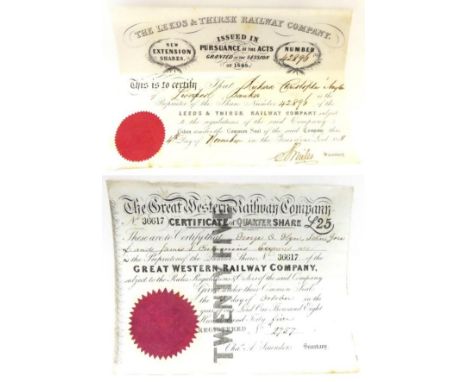 THE LEEDS & THIRSK RAILWAY COMPANY.
NEW EXTENSION SHARES.
ISSUED IN
PURSUANCE OF THE ACTS
GRANTED IN THE SESSION
OF 1846.
NUMBER
42896
This is to certify That Richard Christopher
of Liverpool Banker is the
Proprietor of the Share Number 42896 of the
LEEDS & THIRSK RAILWAY COMPANY subject
to the regulations of the said Company
Given under the Common Seal of the said Company this
Day of November in the Year of our Lord
Secretary.
The Great Western Railway Company
No 36617 CERTIFICATE of QUARTER SHARE £25
These are to Certify that George
James
is the Proprietor of the Share No 36617 of the
GREAT WESTERN RAILWAY COMPANY,
subject to the Rules Regulations & Orders of the said Company
Given under the Common Seal
the day of October in the
Year of our Lord One Thousand Eight
Hundred and Forty five
REGISTERED No 2757
Chas. A. Saunders Secretary.
TWENTY FIVE